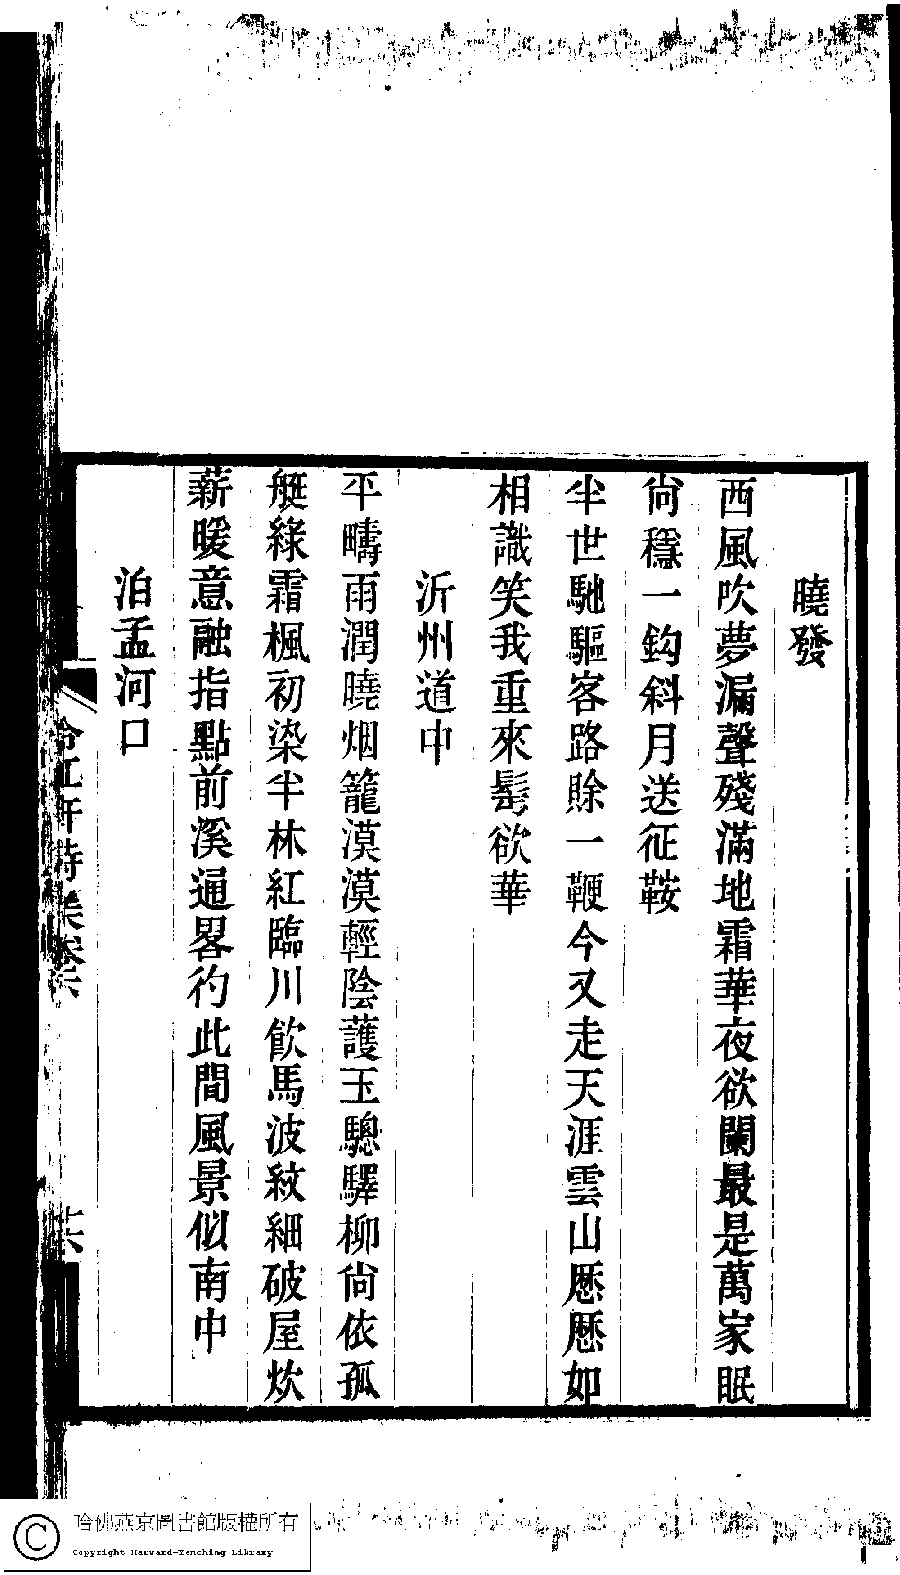 曉發
西風吹夢漏聲殘滿地霜華夜欲闌最是萬家眠
尙穩一鈎斜月送征鞍
半世馳驅客路賖一鞭今又走天涯雲山厯厯如
相識笑我重來髩欲華
沂州道中
平疇雨潤曉烟籠漠漠輕陰護玉驄驛柳尙依孤
艇綠霜楓初染半林紅臨川飮馬波紋細破屋炊
薪暖意融指點前溪通畧彴此間風景似南中
泊孟河口
軒詩
哈佛燕京圖書館版權所有
Copyright Harvard-Yenching Library